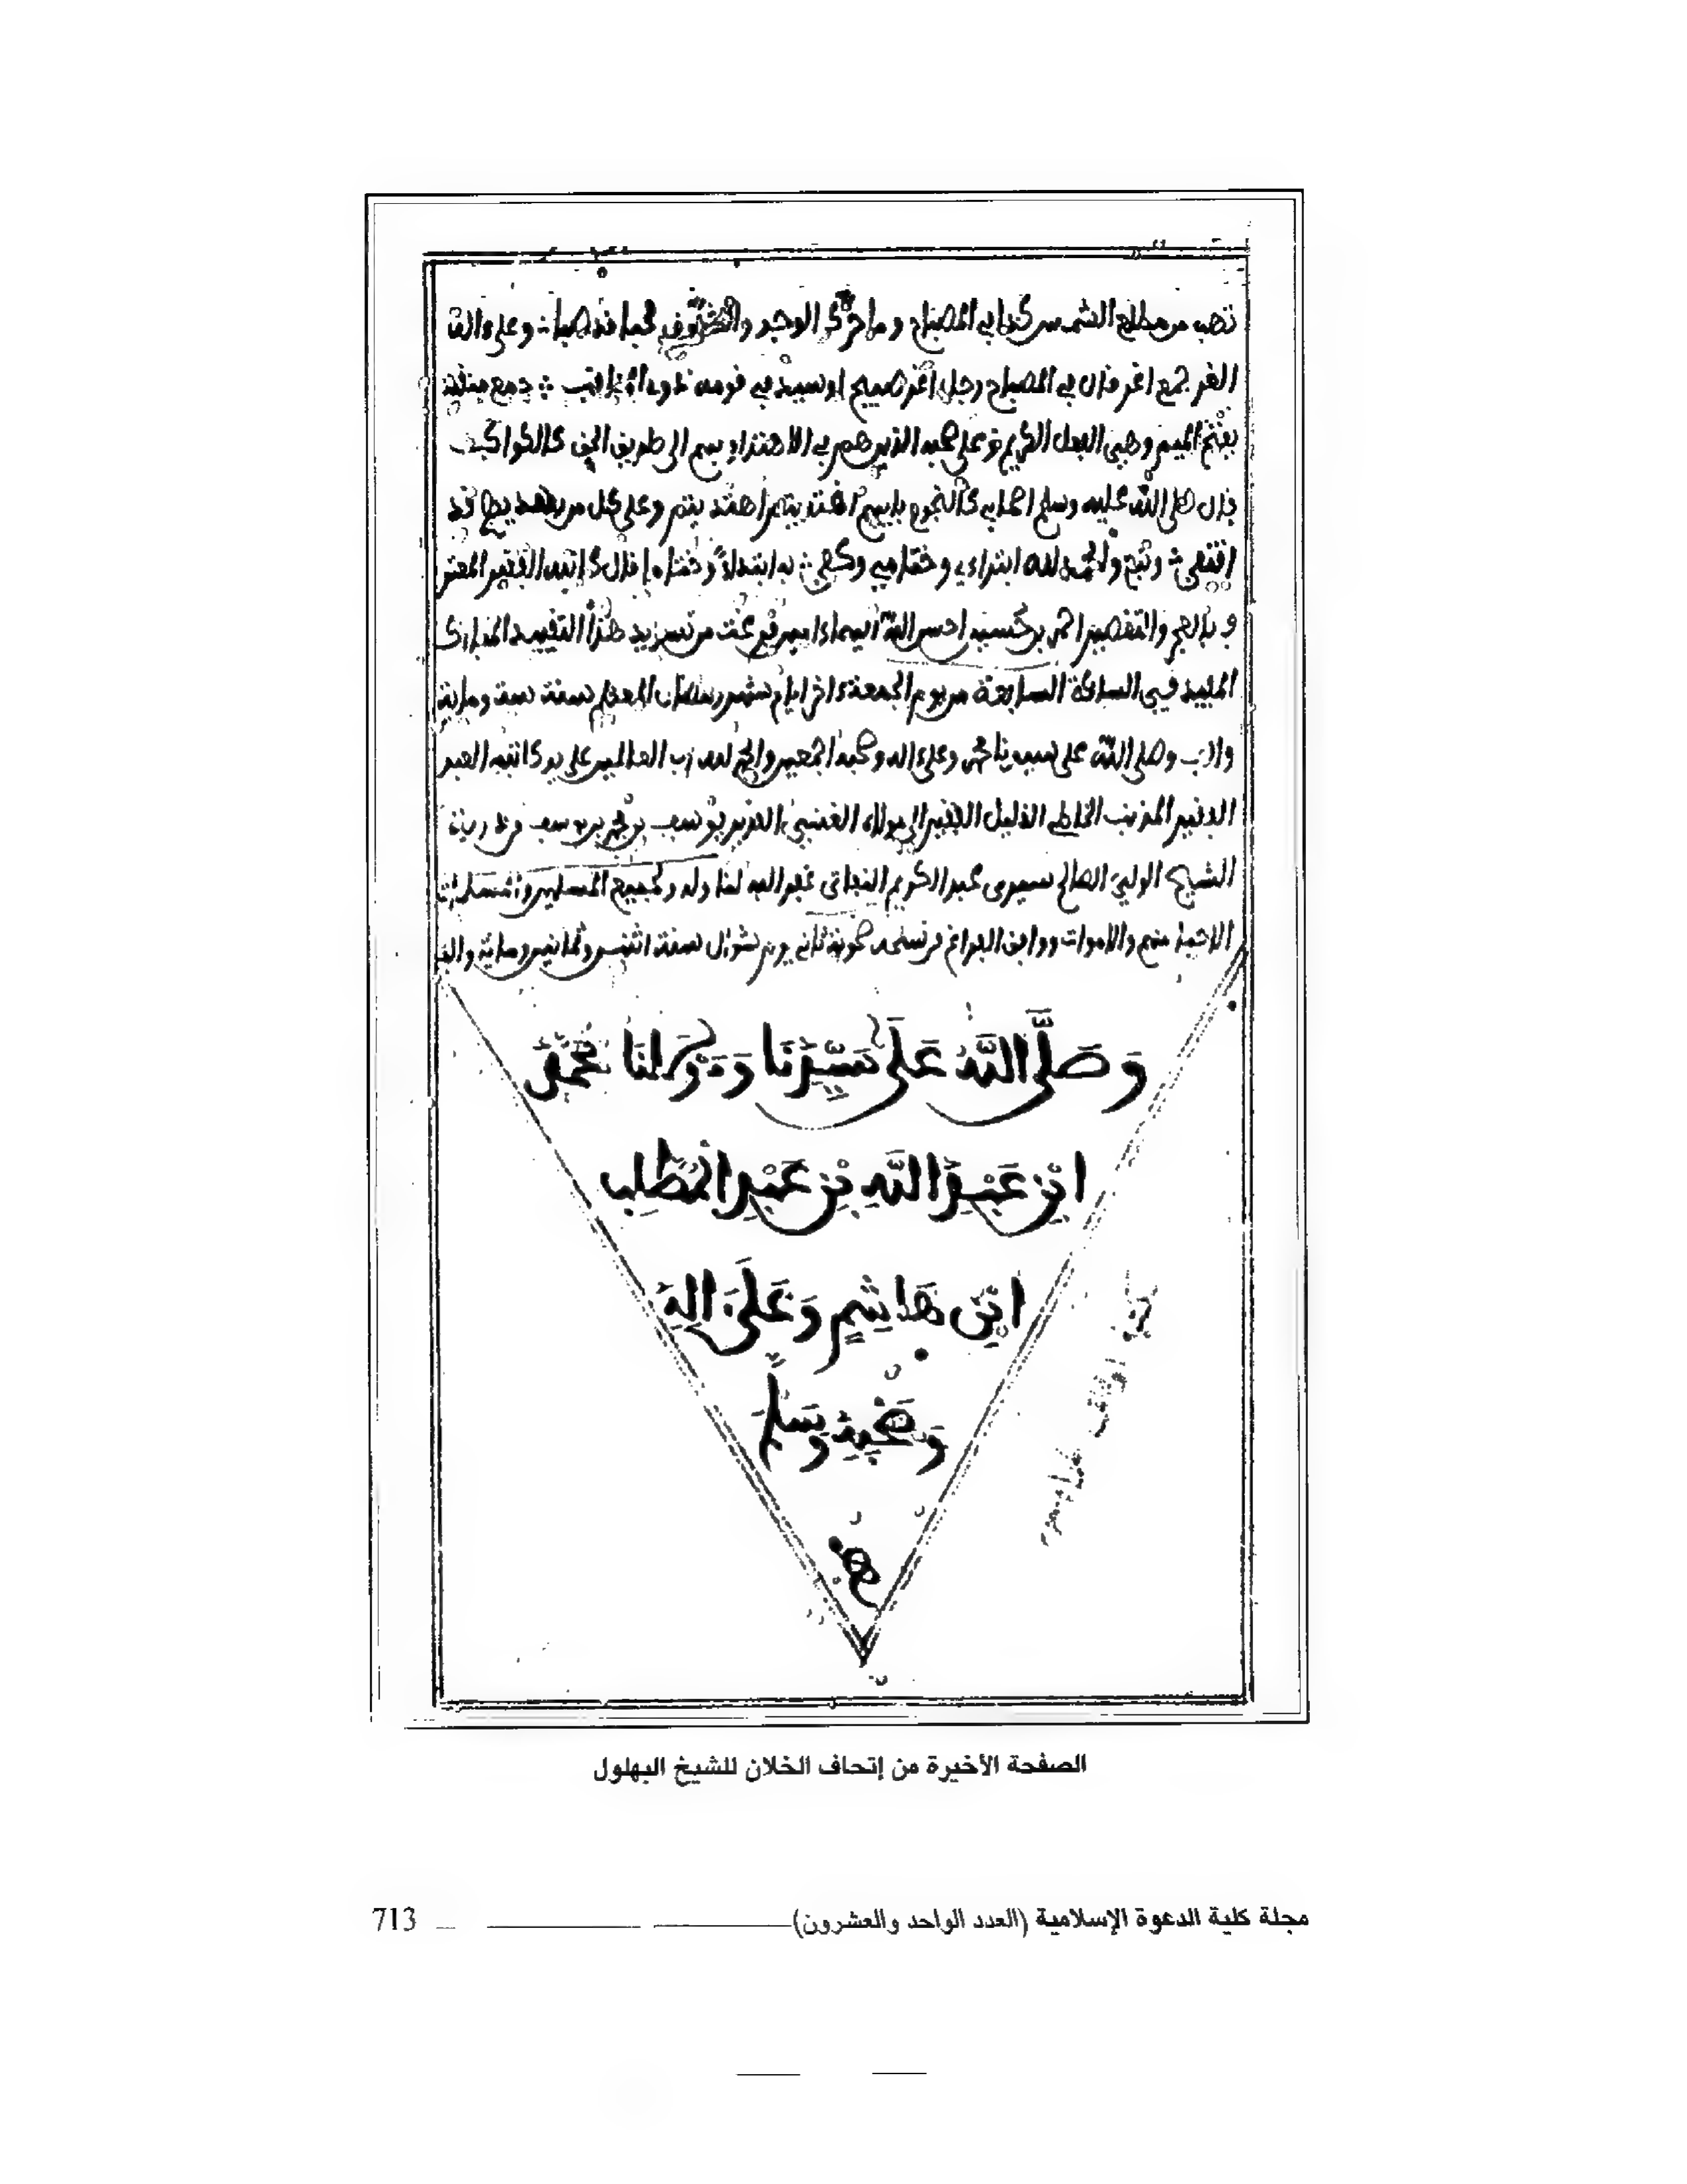 تهب من مطلع الشمس كذا في المصباح وما حرك الوجد والتشوف محبا قد صبا وعلى ءاله
الغر جمع اغر قال في المصباح رجل اغر صبيح او سيد في قومه ذوء المناقب جمع منقبة
بفتح الميم وهي الفعل الكريم وعلى صحبه الذين هم في الاهتداء بهم الى طريق الحق كالكواكب
قال صلى الله عليه وسلم اصحابي كالنجوم بايهم اقتديتم اهتديتم وعلى كل من بهديهم قد
اقتفى وتبع والحمد لله ابتداءي وختامي وكفى به ابتداء وختاما قال كاتبه الفقير المعتر
ف بالعجز والتقصير احمد بن حسين احسن الله اليهما ءامين فرغت من تسويد هذا التقييد المبارك
المفيد في الساعة السابعة من يوم الجمعة ءاخر ايام شهر رمضان المعظم سنة ستة وماية
والف وصلى الله على سيدنا محمد وعلى ءاله وصحبه اجمعين والحمد لله رب العالمين على يد كاتبه العبد
الفقير المذنب الخاطي الذليل الفقير الى مولاه الغني القدير يوسف بن محمد بن يوسف من ذرية
الشيخ الولي الصالح سيدي عبد الكريم غفر الله لنا وله ولجميع المسلمين والمسلمات
الاحياء منهم والاموات ووافق الفراغ من نسخه ضحوة ثاني يوم شوال سنة اثنين وثمانين وماية والف
وَصَلَّى اللَّهُ عَلَى سَيِّدِنَا وَمَوْلَانَا مُحَمَّدٍ
ابْنِ عَبْدِ اللَّهِ بْنِ عَبْدِ الْمُطَّلِبِ
ابْنِ هَاشِمٍ وَعَلَى ءَالِهِ
وَصَحْبِهِ وَسَلَّمَ
الصفحة الأخيرة من إتحاف الخلان للشيخ البهلول
مجلة كلية الدعوة الإسلامية (العدد الواحد والعشرون) 713